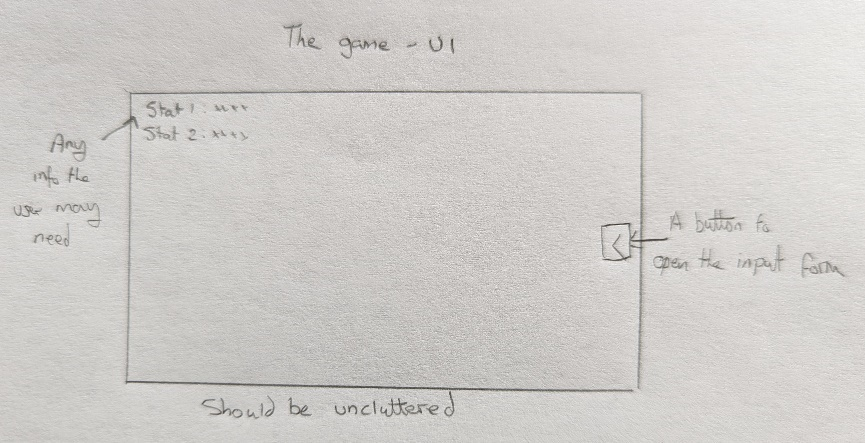 The game - UI
Stat 1: xxxx
Stat 2: xxxx
Any
info the
user may
need
<
A button to
open the input form
Should be uncluttered